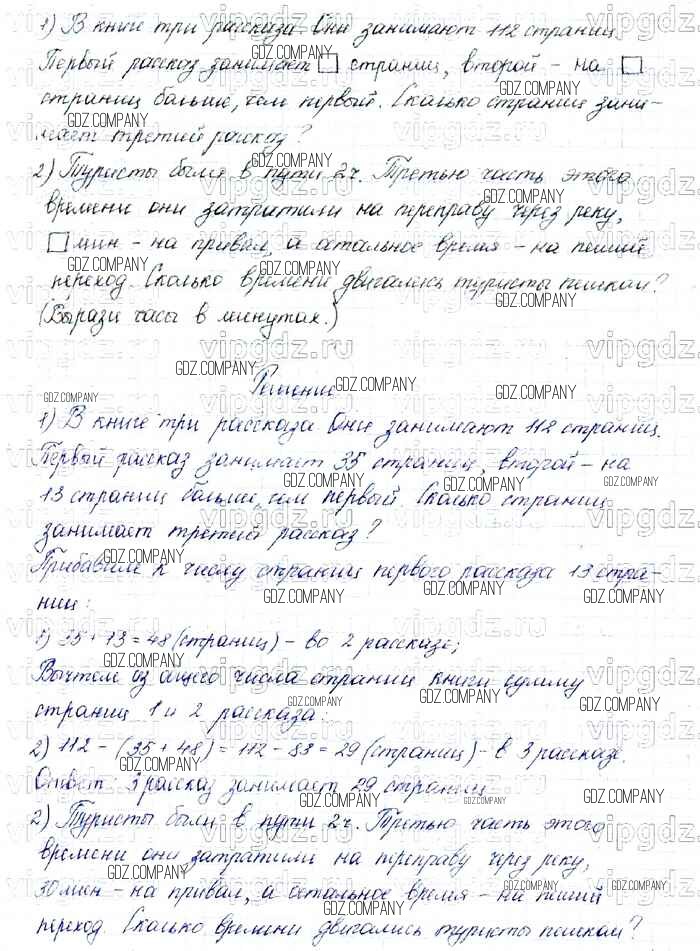 1) В книге три рассказа. Они занимают 112 страниц.
Первый рассказ занимает □ страниц, второй - на □
страниц больше, чем первый. Сколько страниц зани-
мает третий рассказ?
2) Туристы были в пути 2ч. Третью часть этого
времени они затратили на переправу через реку,
□ мин - на привал, а остальное время - на пеший
переход. Сколько времени двигались туристы пешком?
(Вырази часы в минутах.)
Решение
1) В книге три рассказа. Они занимают 112 страниц.
Первый рассказ занимает 35 страниц, второй - на
13 страниц больше, чем первый. Сколько страниц
занимает третий рассказ?
Прибавим к числу страниц первого рассказа 13 стра-
ниц:
1) 35 + 13 = 48 (страниц) - во 2 рассказе;
Вычтем из общего числа страниц книги сумму
страниц 1 и 2 рассказа:
2) 112 - (35 + 48) = 112 - 83 = 29 (страниц) - в 3 рассказе.
Ответ: 3 рассказ занимает 29 страниц.
2) Туристы были в пути 2ч. Третью часть этого
времени они затратили на переправу через реку,
30 мин - на привал, а остальное время - на пеший
переход. Сколько времени двигались туристы пешком?
vipgdz.ru
GDZ.COMPANY